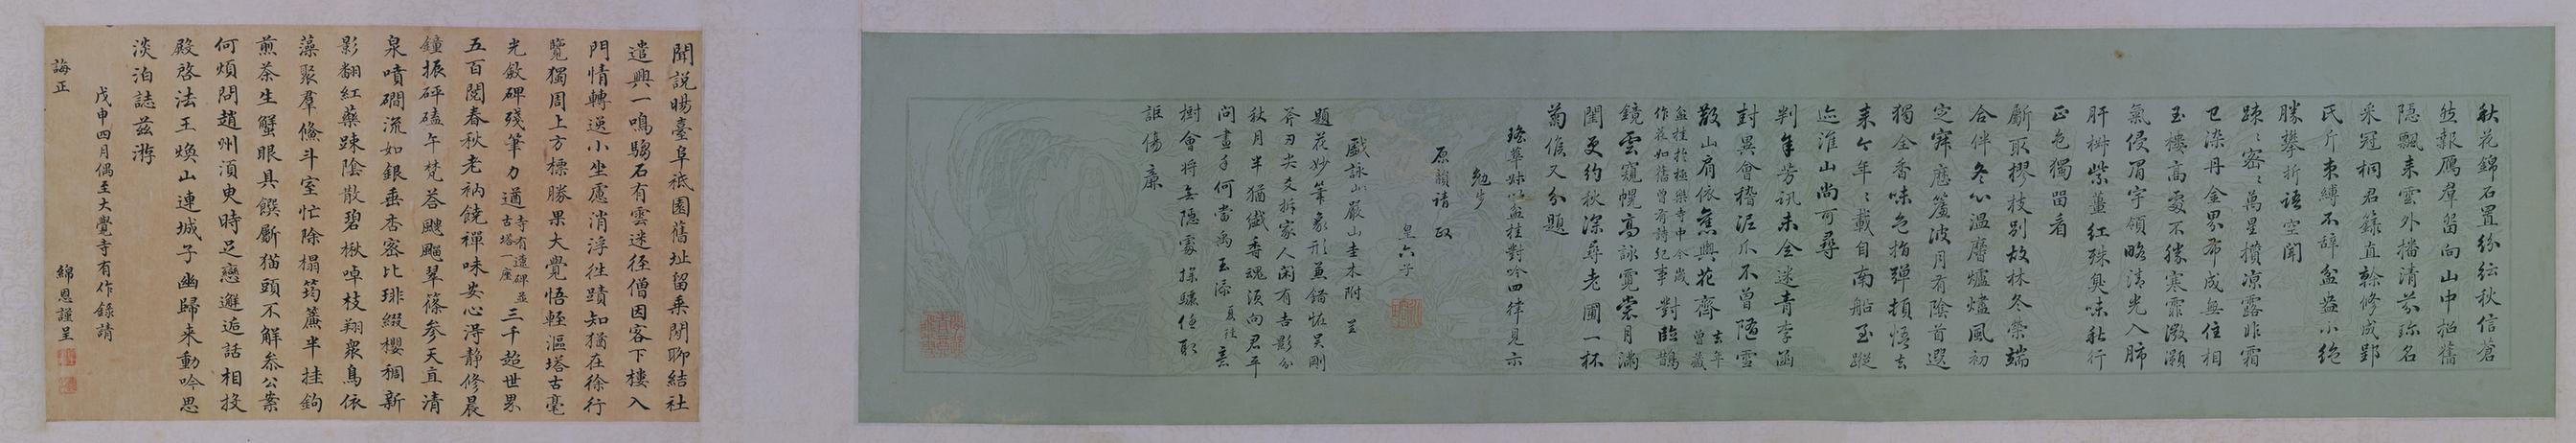 秋花錦石置紛紜秋信蒼
然報雁群留向山中招舊
隱飄來雲外播清芬珎名
采冠桐君籙直榦修成郢
氏斤束縛不辭盆盎小絶
勝攀折語空聞
踈〻密〻萬星攢凉露非霜
已染丹金界布成無住相
玉樓高處不勝寒霏微灝
氣侵眉宇領略清光入肺
肝樹紫薑紅殊臭味秋行
正色獨留看
斸取樛枝別故林冬榮端
合伴冬心溫麐爐燼風初
定寐應簾波月有陰首選
獨全香味色指彈頓悟去
來今年〻載自南船至蹤
迹淮山尚可尋
判年芳訊未全迷青李函
封異會稽泥爪不曾隨雪
散山肩依舊與花齊去年曾藏
盆桂於極樂寺中今歲
作花如舊曾有詩紀事對臨鵲
鏡雲窺幌高詠霓裳月滿
閨更約秋深尋老圃一杯
菊俟又分題
瑤華妹以盆桂對吟四律見示
勉步
原韻請政
皇六子
戲詠山巖山桂木附呈
題花妙筆象形兼錯恠吳剛
斧刃尖交拆家人闲有吉影分
秋月半猶纖香魂須向君平
問畫手何當禹玉添夏往義
樹會將無隱處採驪値取
詎傷廉
聞說暘臺阜祗園舊址留乘閒聊結社
遣興一鳴騶石有雲迷徑僧因客下樓入
門情轉逸小坐慮消浮徃蹟知猶在徐行
覽獨周上方標勝果大覺悟輕漚塔古毫
光斂碑殘筆力遒寺有遼碑並古塔一座三千超世界
五百閱春秋老衲饒禪味安心淂靜修晨
鐘振砰磕午梵荅颼飀翠篠參天直清
泉噴磵流如銀垂杏密比琲綴櫻稠新
影翻紅藥踈陰散碧楸啅枝翔衆鳥依
藻聚羣鯈斗室忙除榻筠簾半挂鉤
煎茶生蟹眼具饌斸猫頭不解叅公案
何煩問趙州湏臾時足戀邂逅話相投
殿啓法王煥山連城子幽歸来動吟思
淡泊誌茲游
戊申四月偶至大覺寺有作錄請
誨正
綿恩謹呈